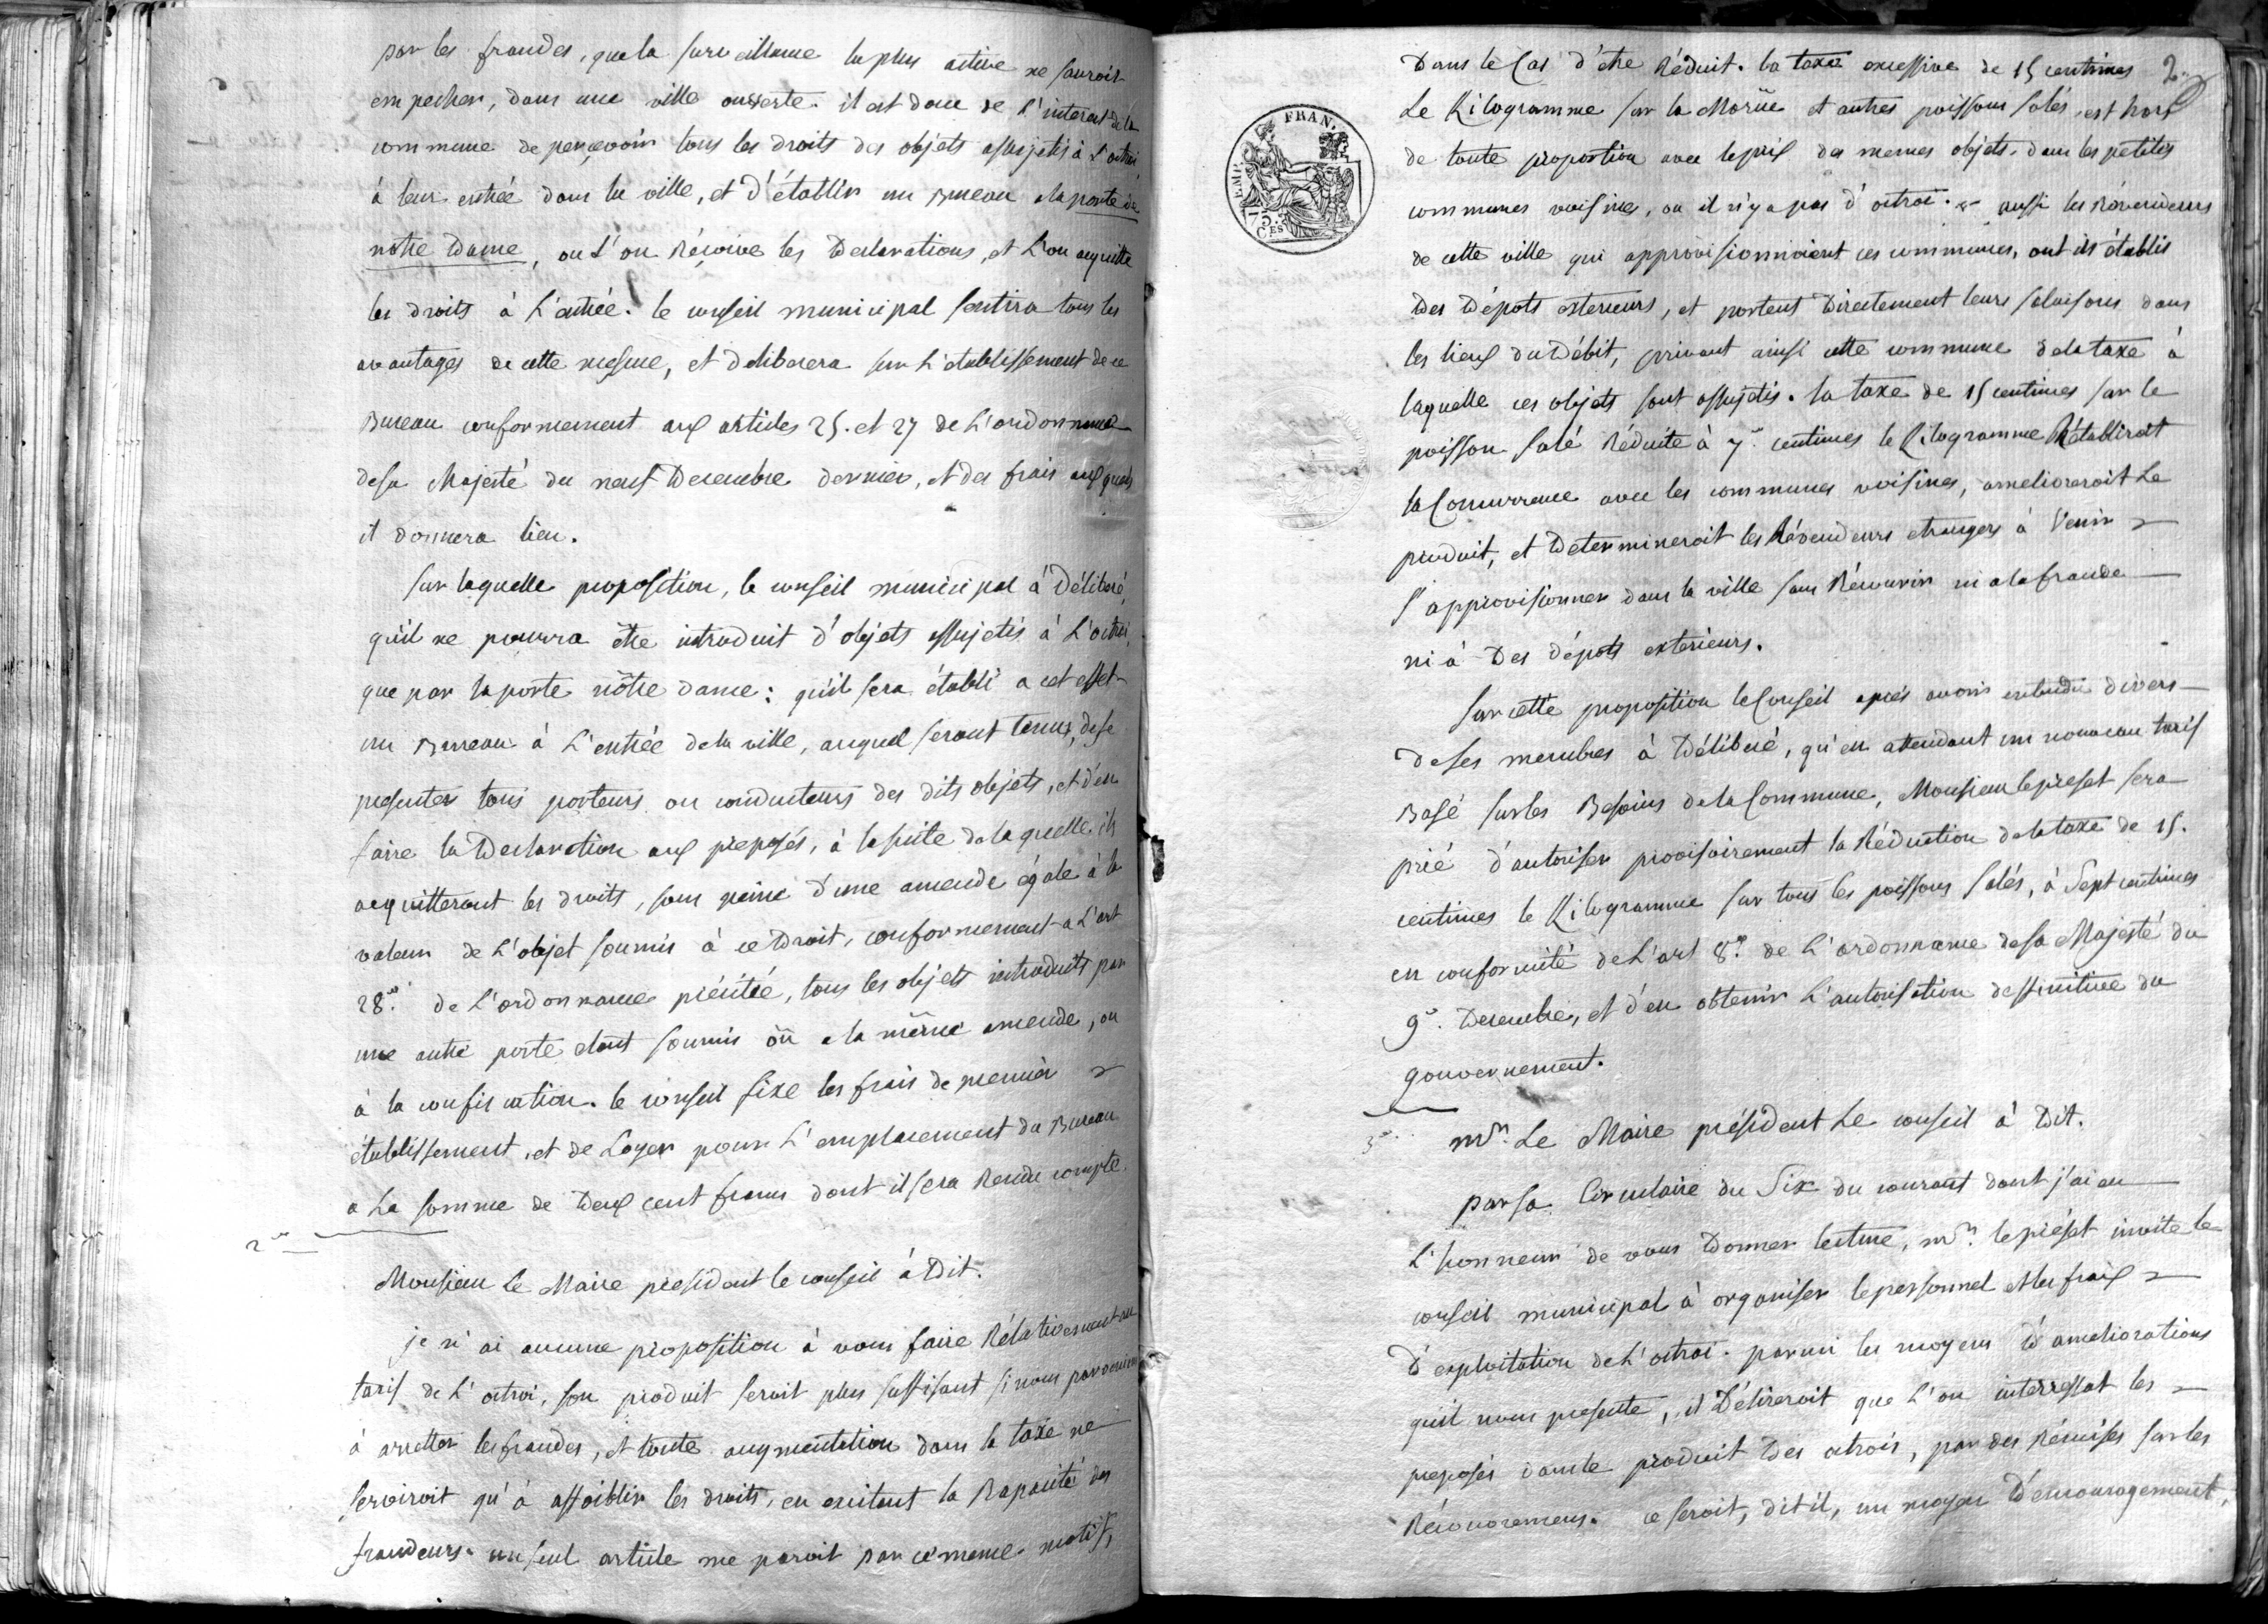 par les fraudes, que la surveillance la plus active ne sauroit
empecher, dans une ville ouverte. il est donc de l'interest de la
commune de percevoir tous les droits des objets assujetis à l'octroi
à leur entrée dans la ville, et d'établir un Bureau a la porte de
notre Dame, ou l'on Réçoive les Declarations, et l'on acquitte
les droits à l'entrée. le conseil municipal sentira tous les
avantages de cette mesure, et deliberera sur l'etablissement de ce
Bureau conformement aux articles 25. et 27 de l'ordonnance
de sa Majesté du neuf Decembre dernier, et des frais aux quels
il donnera lieu.
sur laquelle proposition, le conseil municipal à Délibéré,
qu'il ne pourra être introduit d'objets assujetis à l'octroi,
que par la porte nôtre dame: qu'il sera établi a cet effet
un Bureau à l'entrée de la ville, auquel seront tenus, de se
presenter tous porteurs ou conducteurs des dits objets, et d'en
faire la Declaration aux preposés, à la suite de la quelle ils
acquitteront les droits, sous peine d'une amende égale à la
valeur de l'objet soumis à ce Droit, conformement a l'art
28.e de l'ordonnance précitée, tous les objets introduits par
une autre porte étant soumis où a la même amende, ou
à la confiscation. le conseil fixe les frais de premier
établissement, et de Loyer pour l'emplacement du Bureau
a La somme de Deux cent francs dont il sera Rendu compte.
2.e
Monsieur Le Maire président le conseil à Dit.
je n'ai aucune proposition à vous faire Rélativement au
tarif de l'octroi, son produit seroit plus suffisant si nous parvenions
à arretter les fraudes, et toute augmentation dans la taxe ne
serviroit qu'à affoiblir les droits, en excitant la Rapacité des
fraudeurs. un seul article me paroit par ce meme motif,
2.e
Dans le Cas d'etre Réduit. la taxe excessive de 15 centimes
Le Kilogramme sur la Morüe et autres poissons salés, est hors
de toute proportion avec le prix des memes objets, dans les petites
communes voisines, ou il n'y a pas d'octroi. aussi les Révendeurs
de cette ville qui approvisionnoient ces communes, ont ils établis
des Dépots exterieurs, et portent Directement leurs salaisons dans
les lieux du Débit, privant ainsi cette commune de la taxe à
laquelle ces objets sont assujetis. la taxe de 15 centimes sur le
poisson salé Réduite à 7. centimes le Kilogramme Rétabliroit
la Concurrence avec les communes voisines, amelioreroit Le
produit, et Determineroit les Révendeurs etrangers à Venir
s'approvisionner dans la ville sans Récourir ni a la fraude
ni à Des dépots exterieurs.
sur cette proposition le Conseil après avoir entendu divers
de ses membres à Délibéré, qu'en attendant un nouveau tarif
Basé sur les Besoins de la Commune, Monsieur le préfet sera
prié d'autoriser provisoirement la Réduction de la taxe de 15.
centimes le Kilogramme sur tous les poissons salés, à Sept centimes
en conformité de l'art 8.e de l'ordonnance de sa Majesté du
9.e Decembre, et d'en obtenir l'autorisation deffinitive du
gouvernement.
3.e
Mr. Le Maire président Le conseil à Dit.
par sa Circulaire du Six du courant dont j'ai eu
l'honneur de vous Donner lecture, Mr. le préfet invite le
conseil municipal à organiser le personnel et les fraix
D'exploitation de l'octroi. parmi les moyens D'ameliorations
qu'il nous presente, il Désireroit que l'on interressat les
preposés dans le produit Des octrois, par des Rémises sur les
Récouvremens. ce seroit, dit il, un moyen D'encouragement,
FRAN.
75.
CES